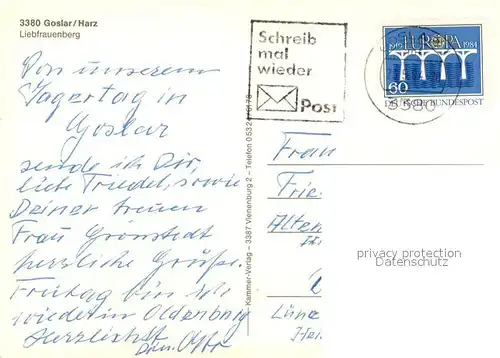 3380 Goslar/Harz
Liebfrauenberg
Von unserem
Jägertag in
Goslar
sende ich Dir,
liebe Friedel, sowie
Deiner treuen
Frau Grönstedt
herzliche Grüße.
Freitag bin ich
wieder in Oldenburg
Herzlichst
Dein
Kammer-Verlag – 3387 Vienenburg 2 – Telefon 053 24
Schreib
mal
wieder
Post
EUROPA
1959 1984
60
DEUTSCHE BUNDESPOST
3380
Frau
Frie
Alten
Lüne
privacy protection
Datenschutz